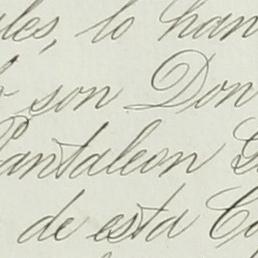 les, lo han
son Don
Pantaleon G
de esta C